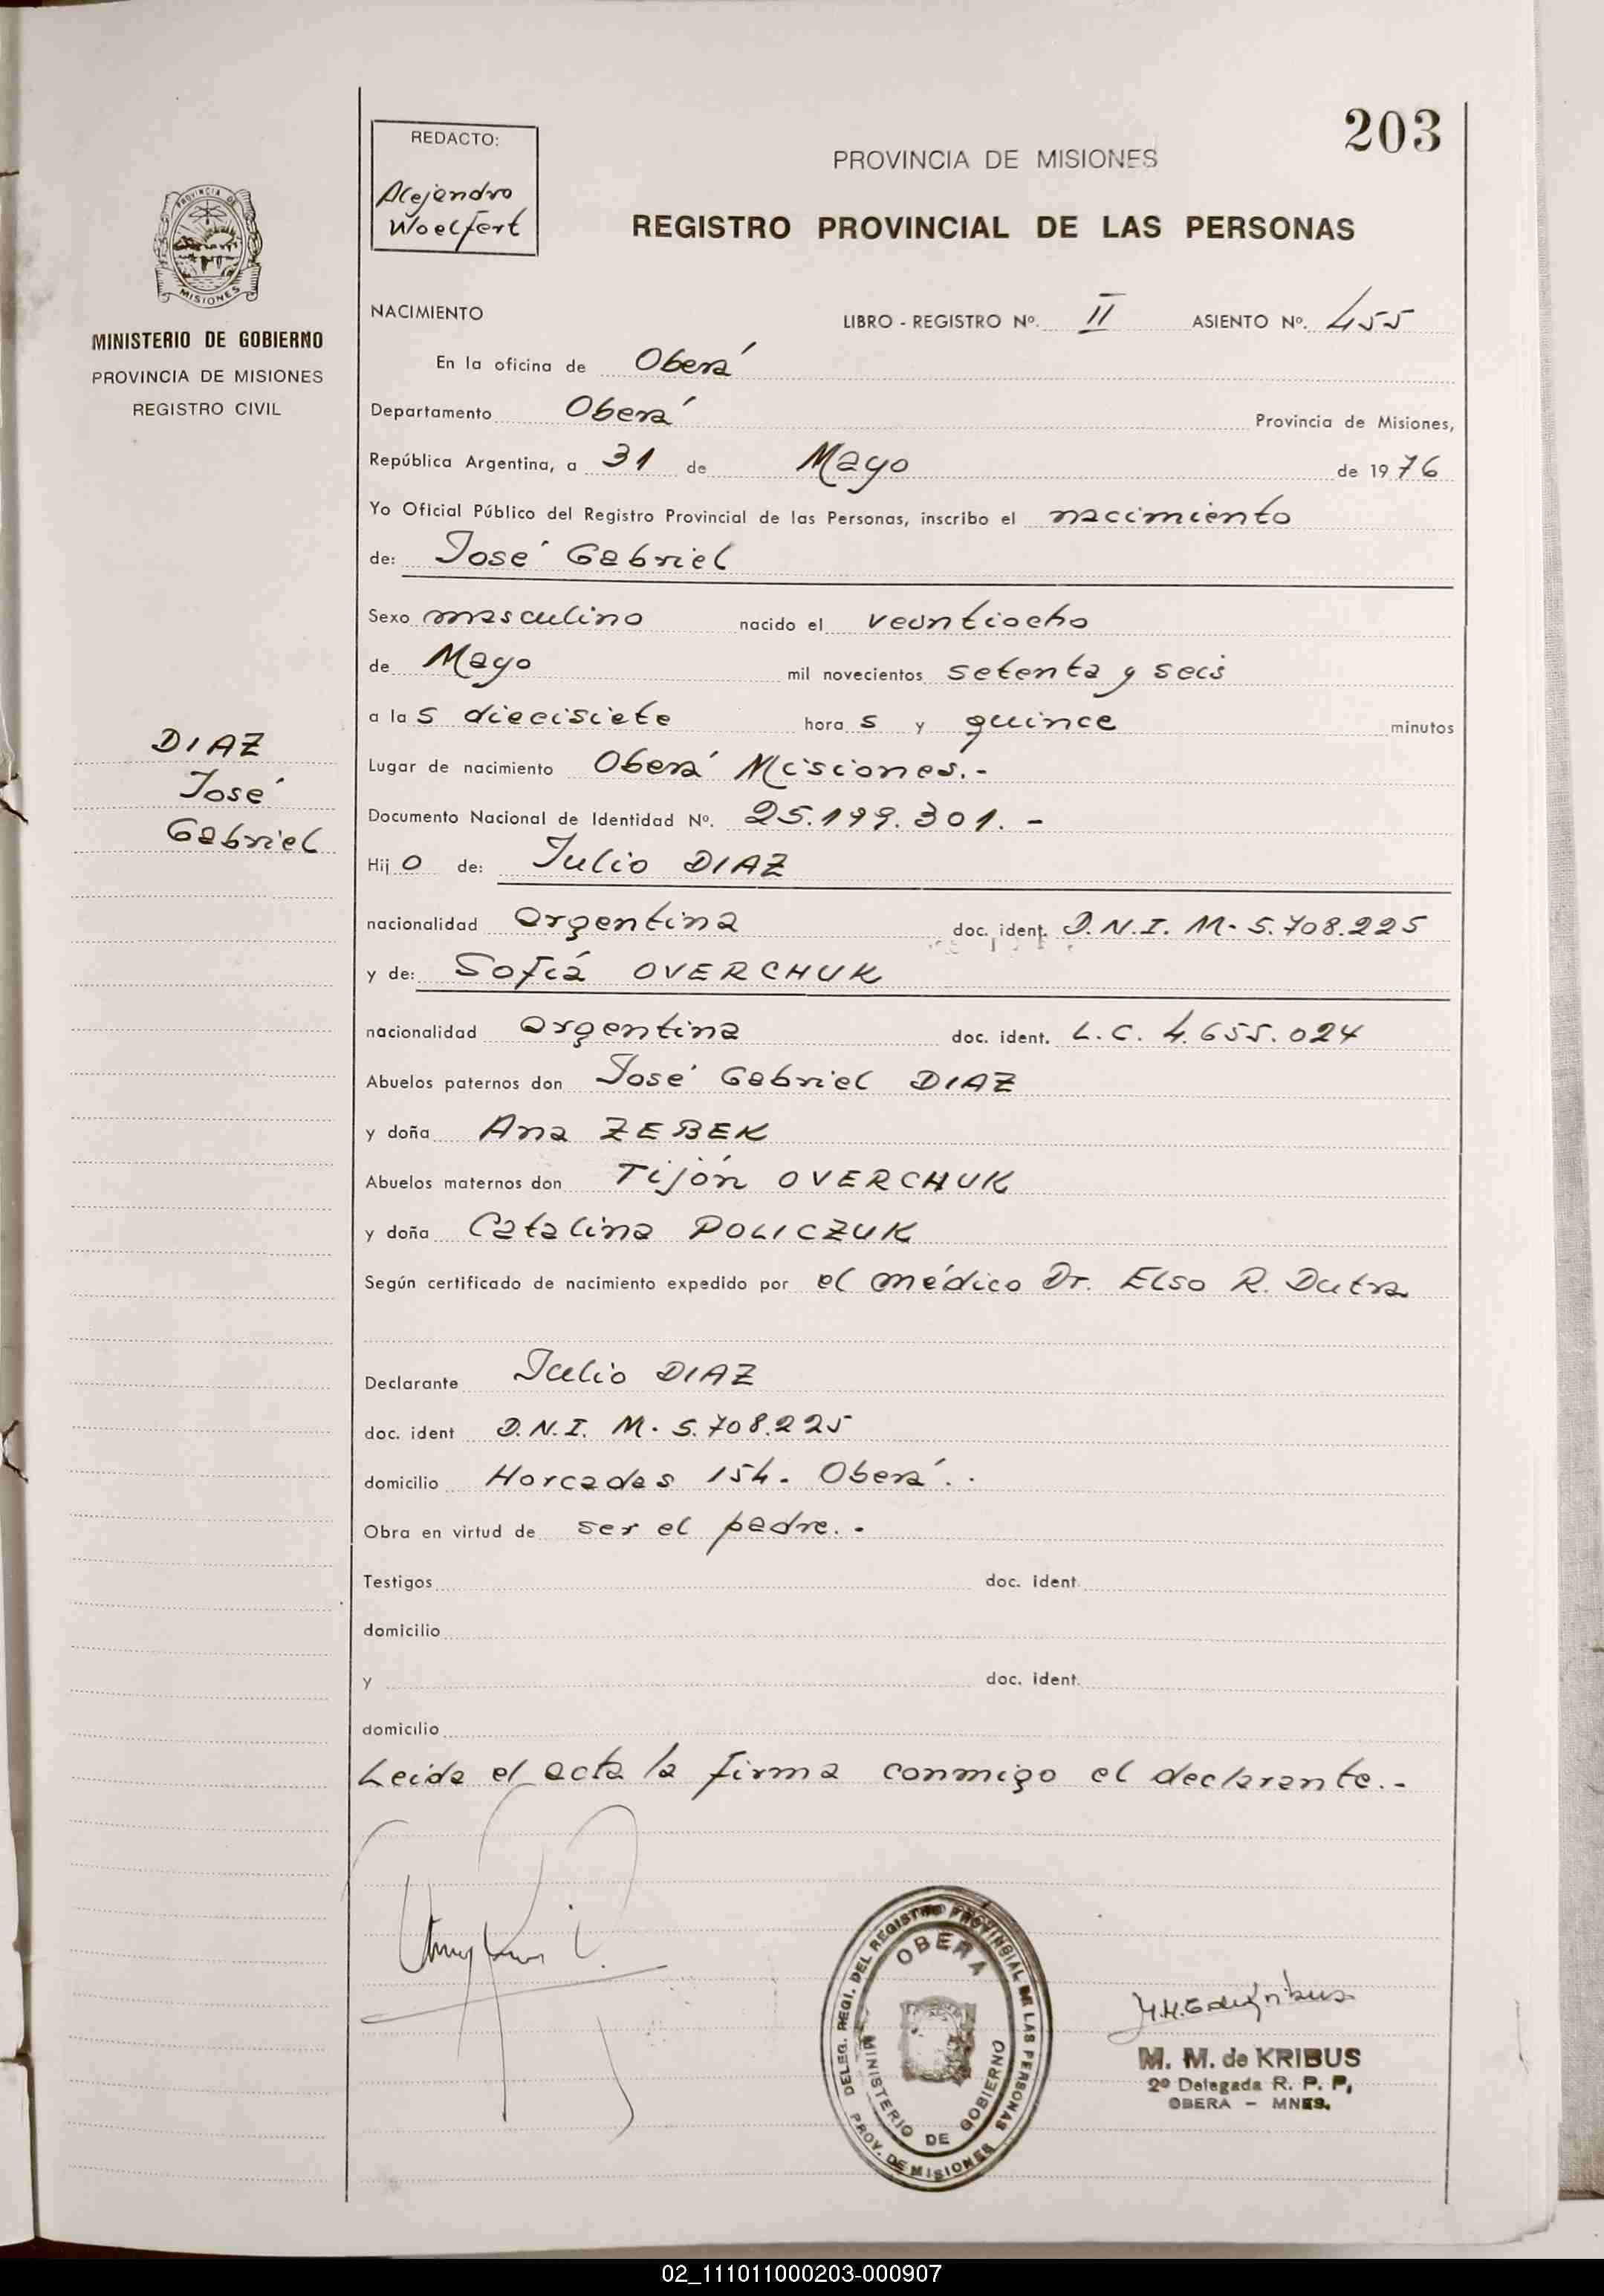 203
REDACTO:
Alejandro
Woelfert
PROVINCIA DE MISIONES
REGISTRO PROVINCIAL DE LAS PERSONAS
PROVINCIA DE
MISIONES
MINISTERIO DE GOBIERNO
PROVINCIA DE MISIONES
REGISTRO CIVIL
DIAZ
José
Gabriel
NACIMIENTO LIBRO - REGISTRO Nº. II ASIENTO Nº. 455
En la oficina de Oberá
Departamento Oberá Provincia de Misiones,
República Argentina, a 31 de Mayo de 1976
Yo Oficial Público del Registro Provincial de las Personas, inscribo el nacimiento
de: José Gabriel
Sexo masculino nacido el veintiocho
de Mayo mil novecientos setenta y seis
a las diecisiete horas y quince minutos
Lugar de nacimiento Oberá Misiones.-
Documento Nacional de Identidad Nº. 25.199.301.-
Hijo de: Julio DIAZ
nacionalidad argentina doc. ident. D.N.I. M- 5.708.225
y de: Sofiá OVERCHUK
nacionalidad argentina doc. ident. L.C. 4.655.024
Abuelos paternos don José Gabriel DIAZ
y doña Ana ZEBEK
Abuelos maternos don Tijón OVERCHUK
y doña Catalina POLICZUK
Según certificado de nacimiento expedido por el médico Dr. Elso R. Dutra
Declarante Julio DIAZ
doc. ident D.N.I. M- 5.708.225
domicilio Horcadas 154. Oberá.-
Obra en virtud de ser el padre.-
Testigos doc. ident.
domicilio
y doc. ident.
domicilio
Leida el acta la firma conmigo el declarante.-
DELEG. REGI. DEL REGISTRO PROVINCIAL DE LAS PERSONAS
OBERA
MINISTERIO DE GOBIERNO
PROV. DE MISIONES
M. M. de KRIBUS
2º Delegada R. P. P,
OBERA - MNES.
02_111011000203-000907